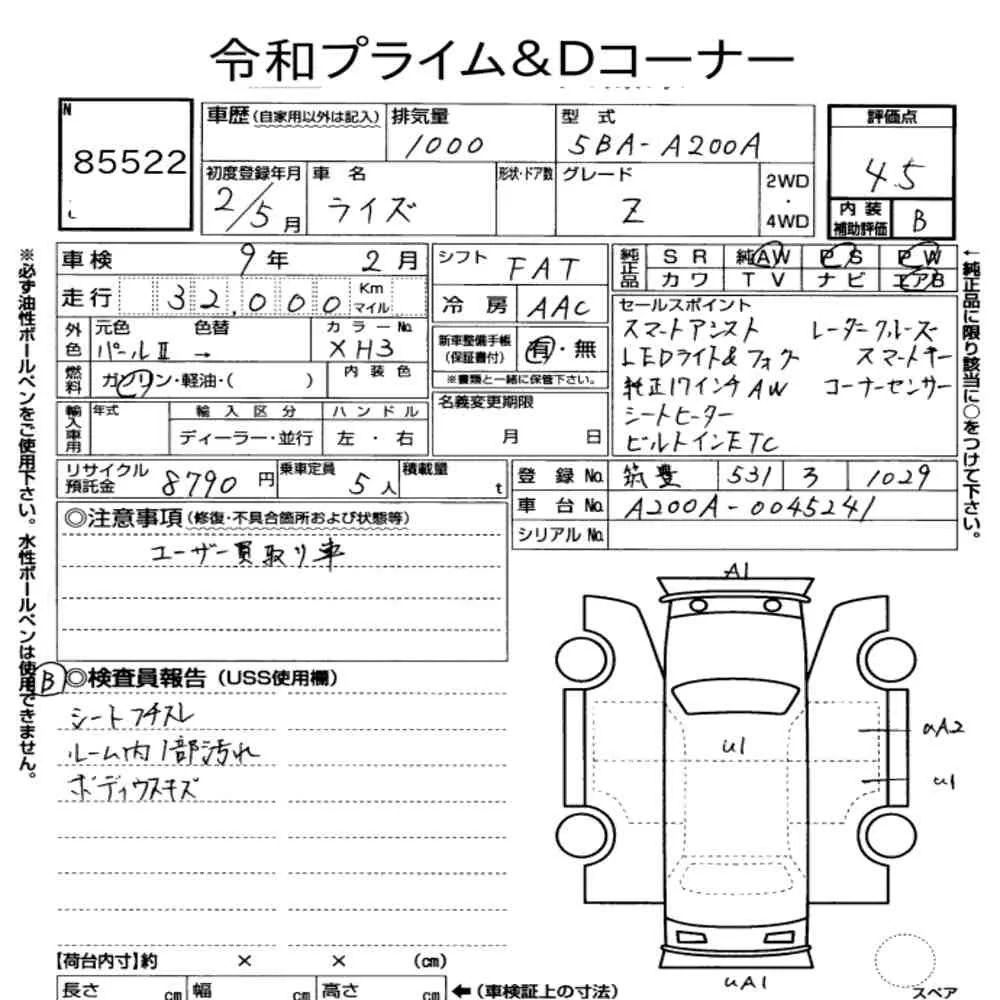 令和プライム&Dコーナー
N
85522
車歴 (自家用以外は記入)
排気量
1000
型式
5BA-A200A
評価点
4.5
内装
補助評価
B
初度登録年月
2/5月
車名
ライズ
形状・ドア数
グレード
Z
2WD
・
4WD
車検 9年 2月
走行 32,000 Km
マイル
シフト
FAT
冷房 AAC
純正品
SR 純AW PS PW
カワ TV ナビ エアB
外色
元色 色替
パールⅡ →
カラーNo.
XH3
燃料
ガソリン・軽油・( )
内装色
新車整備手帳
(保証書付)
有・無
※書類と一緒に保管下さい。
セールスポイント
スマートアシスト レーダークルーズ
LEDライト&フォグ スマートキー
純正17インチAW コーナーセンサー
シートヒーター
ビルトインETC
輸入車用
年式
輸入区分
ディーラー・並行
ハンドル
左・右
名義変更期限
月 日
リサイクル
預託金
8790円
乗車定員
5人
積載量
t
登録No. 筑豊 531 3 1029
車台No. A200A-0045241
シリアルNo.
◎注意事項 (修復・不具合箇所および状態等)
ユーザー買取り車
B
◎検査員報告 (USS使用欄)
シートフチスレ
ルーム内1部汚れ
ボディウスキズ
A1
u1
uA2
u1
uA1
スペア
【荷台内寸】約 × × (cm)
長さ cm 幅 cm 高さ cm ←(車検証上の寸法)
※必ず油性ボールペンをご使用下さい。水性ボールペンは使用できません。
←純正品に限り該当に○をつけて下さい。